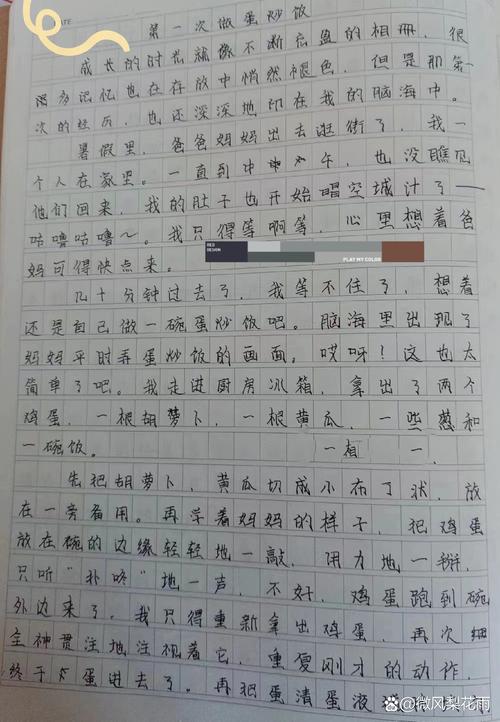 DATE
第一次做蛋炒饭
成长的时光就像不断充盈的相册，很
多记忆也在存放中悄然褪色，但是那第一
次的经历，也还深深地印在我的脑海中。
暑假里，爸爸妈妈出去逛街了，我一
个人在家里。一直到中午，也没瞧见
他们回来，我的肚子也开始唱空城计了——
咕噜咕噜～。我只得等啊等，心里想着爸
妈可得快点来。
RED
DESIGN
PLAY MY COLOR
几十分钟过去了，我等不住了，想着
还是自己做一碗蛋炒饭吧。脑海里出现了
妈妈平时弄蛋炒饭的画面。哎呀！这也太
简单了吧。我走进厨房冰箱，拿出了两个
鸡蛋，一根胡萝卜，一根黄瓜，一些葱和
一碗饭。
先把胡萝卜，黄瓜切成小布丁状，放
在一旁备用。再学着妈妈的样子，把鸡蛋
放在碗的边缘轻轻地一敲，用力地一掰，
只听“扑咚”地一声，不好，鸡蛋跑到碗
外边来了，我只得重新拿出鸡蛋，再次
全神贯注地注视着它，重复刚才的动作，
终于蛋进去了。再把蛋清蛋液
百家号/微风梨花雨